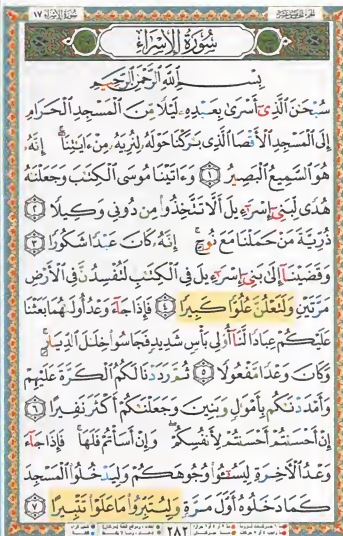 سُورَةُ الإِسْرَاءِ ١٧
الجزء الخامس عشر
سُورَةُ الإِسْرَاءِ
بِسْمِ ٱللَّهِ ٱلرَّحْمَٰنِ ٱلرَّحِيمِ
سُبْحَٰنَ ٱلَّذِىٓ أَسْرَىٰ بِعَبْدِهِۦ لَيْلًا مِّنَ ٱلْمَسْجِدِ ٱلْحَرَامِ
إِلَى ٱلْمَسْجِدِ ٱلْأَقْصَا ٱلَّذِى بَٰرَكْنَا حَوْلَهُۥ لِنُرِيَهُۥ مِنْ ءَايَٰتِنَآ ۚ إِنَّهُۥ
هُوَ ٱلسَّمِيعُ ٱلْبَصِيرُ ١ وَءَاتَيْنَا مُوسَى ٱلْكِتَٰبَ وَجَعَلْنَٰهُ
هُدًى لِّبَنِىٓ إِسْرَٰٓءِيلَ أَلَّا تَتَّخِذُوا۟ مِن دُونِى وَكِيلًا ٢
ذُرِّيَّةَ مَنْ حَمَلْنَا مَعَ نُوحٍ ۚ إِنَّهُۥ كَانَ عَبْدًا شَكُورًا ٣
وَقَضَيْنَآ إِلَىٰ بَنِىٓ إِسْرَٰٓءِيلَ فِى ٱلْكِتَٰبِ لَتُفْسِدُنَّ فِى ٱلْأَرْضِ
مَرَّتَيْنِ وَلَتَعْلُنَّ عُلُوًّا كَبِيرًا ٤ فَإِذَا جَآءَ وَعْدُ أُولَىٰهُمَا بَعَثْنَا
عَلَيْكُمْ عِبَادًا لَّنَآ أُو۟لِى بَأْسٍ شَدِيدٍ فَجَاسُوا۟ خِلَٰلَ ٱلدِّيَارِ ۚ
وَكَانَ وَعْدًا مَّفْعُولًا ٥ ثُمَّ رَدَدْنَا لَكُمُ ٱلْكَرَّةَ عَلَيْهِمْ
وَأَمْدَدْنَٰكُم بِأَمْوَٰلٍ وَبَنِينَ وَجَعَلْنَٰكُمْ أَكْثَرَ نَفِيرًا ٦
إِنْ أَحْسَنتُمْ أَحْسَنتُمْ لِأَنفُسِكُمْ ۖ وَإِنْ أَسَأْتُمْ فَلَهَا ۚ فَإِذَا جَآءَ
وَعْدُ ٱلْءَاخِرَةِ لِيَسُۥٓـُٔوا۟ وُجُوهَكُمْ وَلِيَدْخُلُوا۟ ٱلْمَسْجِدَ
كَمَا دَخَلُوهُ أَوَّلَ مَرَّةٍ وَلِيُتَبِّرُوا۟ مَا عَلَوْا۟ تَتْبِيرًا ٧
٢٨٢